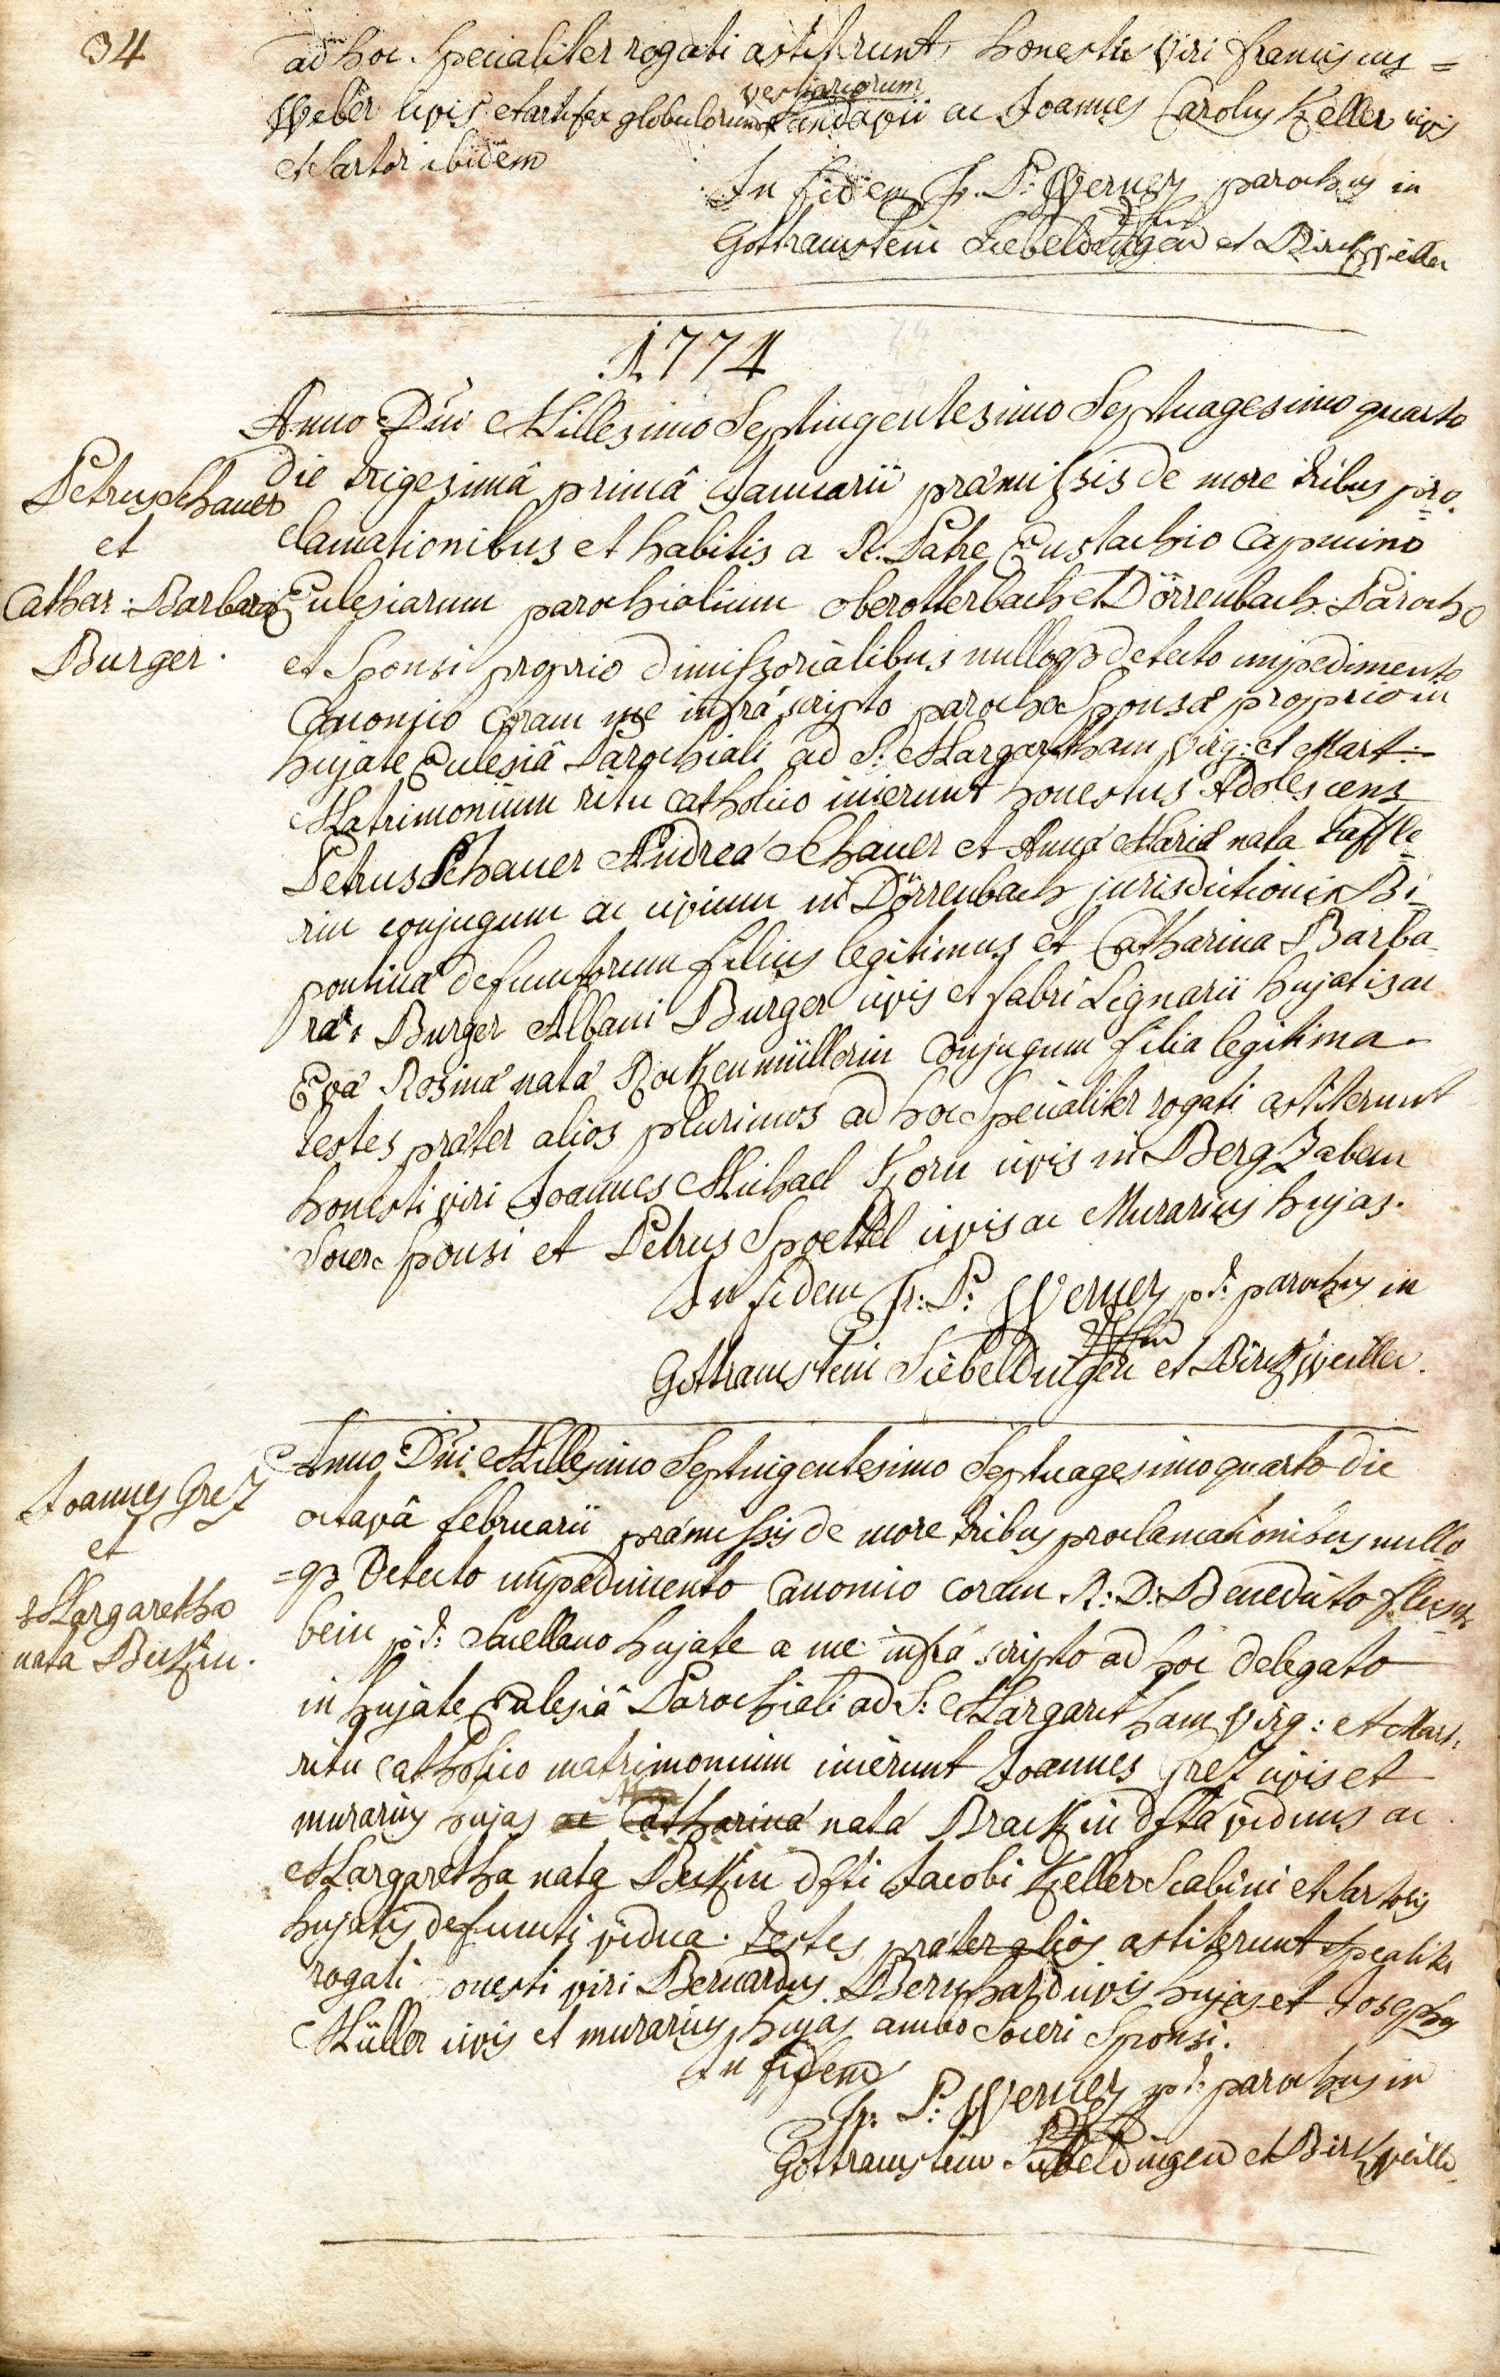 34
ad hoc specialiter rogati astiterunt honesti viri franciscus =
Weber civis et artifex globulorum vestiariorum Landavii ac Joannes Carolus Keller civis
et sartor ibidem
In fidem fr. P: Werner parochus in
Gottramstein Siebeldingen et Birckweiller
1774
Anno Dni Millesimo Septingentesimo Septuagesimo quarto
die trigesimâ primâ Januarii praemissis de more tribus pro-
clamationibus et habitis a R. Patre Eustachio Capucino
Ecclesiarum parochialium oberotterbach et Dörrenbach Parocho
et Sponsi proprio dimissorialibus nulloq3 detecto impedimento
Canonico coram me infrà scripto parocho Sponsae proprio in
hujate Ecclesiâ Parochiali ad S: Margaretham Virg: et Mart:
Matrimonium ritu catholico inierunt honestus Adolescens
Petrus Schauer Andreae Schauer et Annae Mariae nata
rin conjugum ac civium in Dörrenbach jurisdictionis Bi-
pontinae defunctorum filius legitimus et Catharina Barba-
ra Burger Albani Burger civis et fabri Lignarii hujatis ac
Eva Rosina nata Rockenmüllerin conjugum filia legitima.
testes praeter alios plurimos ad hoc specialiter rogati astiterunt
honesti viri Joannes Michael Korn civis in BergZabern
Socer Sponsi et Petrus Spoettel civis ac Murarius hujas.
In fidem fr: P: Werner p.t: parochus in
Gottramstein Siebeldingen et Birckweiller.
Petrus Schauer
et
Cathar: Barbara
Burger.
Anno Dni Millesimo Septingentesimo Septuagesimo quarto die
octavâ februarii praemissis de more tribus proclamationibus nullo
=q3 detecto impedimento Canonico coram R: D: Benedicto
bein p.t: Sacellano hujate a me infrà scripto ad hoc delegato
in hujate Ecclesiâ Parochiali ad S: Margaretham Virg: et Mart:
ritu catholico matrimonium inierunt Joannes Grez civis et
murarius hujas ac Catharina nata Brackin dfta viduus ac
Margaretha nata Beckin dfti Jacobi Keller Scabini et sartoris
hujatis defuncti vidua. testes praeter alios astiterunt specialiter
rogati honesti viri Bernardus Bernhard civis hujas et Josephus
Müller civis et murarius hujas ambo Soceri Sponsi.
In fidem
fr: P: Werner p.t: parochus in
Gottramstein Siebeldingen et Birckweiller
Joannes Grez
et
Margaretha
nata Beckin.